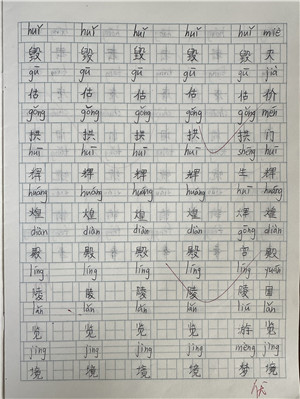 huǐ huǐ huǐ huǐ huǐ miè
毁 毁 毁 毁 毁 灭
gū gū gū gū gū jià
估 估 估 估 估 价
gǒng gǒng gǒng gǒng gǒng mén
拱 拱 拱 拱 拱 门
huī huī huī huī shēng huī
辉 辉 辉 辉 生 辉
huáng huáng huáng huáng huī huáng
煌 煌 煌 煌 辉 煌
diàn diàn diàn diàn gōng diàn
殿 殿 殿 殿 宫 殿
líng líng líng líng líng yuán
陵 陵 陵 陵 陵 园
lǎn lǎn lǎn lǎn liú lǎn
览 览 览 览 览
jìng jìng jìng jìng mèng jìng
境 境 境 境 梦 境